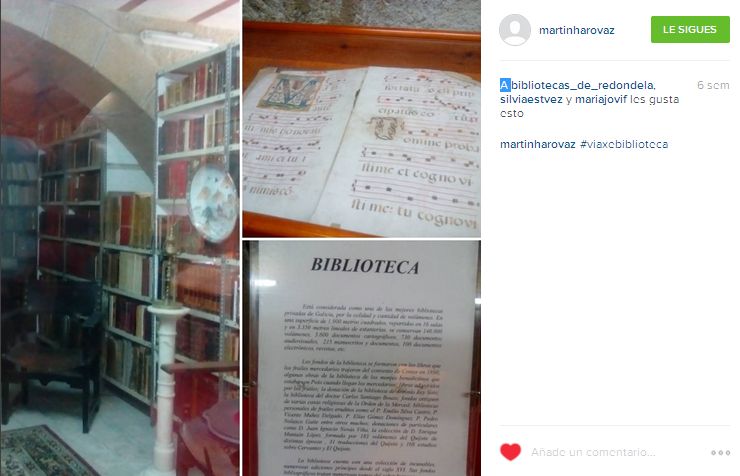 omine proba
sti me: et cognovi
sti me: tu cognovi
BIBLIOTECA
Está considerada como una de las mejores bibliotecas
privadas de Galicia, por la calidad y cantidad de volúmenes. En
una superficie de 1.900 metros cuadrados, repartidos en 16 salas
y en 3.350 metros lineales de estanterías, se conservan 140.000
volúmenes, 3.600 documentos cartográficos; 720 documentos
audiovisuales, 215 manuscritos y documentos, 100 documentos
electrónicos, revistas, etc.
Los fondos de la biblioteca se formaron con los libros que
los frailes mercedarios trajeron del convento de Conxo en 1890;
algunas obras de la biblioteca de los monjes benedictinos que
estaban en Poio cuando llegan los mercedarios; libros adquiridos
por los frailes; la donación de la biblioteca de
la biblioteca del doctor Carlos Santiago Bouzo; fondos antiguos
de varias casas religiosas de la Orden de la Merced; bibliotecas
personales de frailes eruditos como el P. Emilio Silva Castro, P.
Vicente Muñoz Delgado, P. Elías Gómez Domínguez, P. Pedro
Nolasco Gaite entre otros muchos; donaciones de particulares
como D. Juan Ignacio Novás Viña, la colección de D. Enrique
Muntain López, formada por 181 volúmenes del Quijote de
distintas épocas, 31 traducciones del Quijote y 168 estudios
sobre Cervantes y El Quijote.
La biblioteca cuenta con una colección de incunables,
numerosas ediciones príncipes desde el siglo XVI. Sus fondos
martinharovaz
LE SIGUES
A bibliotecas_de_redondela, 6 sem
silviaestvez y mariajovif les gusta
esto
martinharovaz #viaxebiblioteca
Añade un comentario...